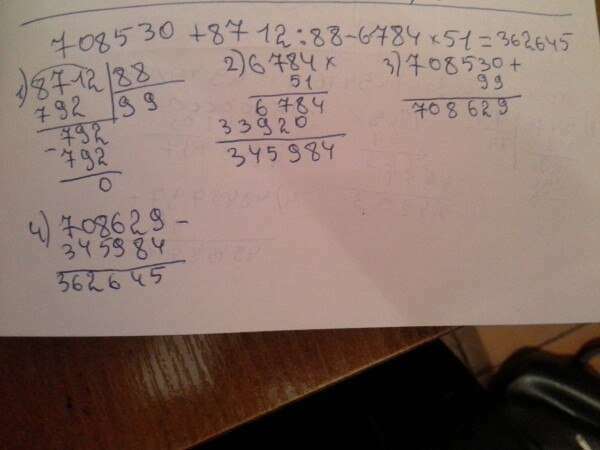 708530 + 8712 : 88 - 6784 × 51 = 362645
1) 8712 | 88
792 | 99
- 792
792
0
2) 6784 ×
51
6784
33920
345984
3) 708530 +
99
708629
4) 708629 -
345984
362645